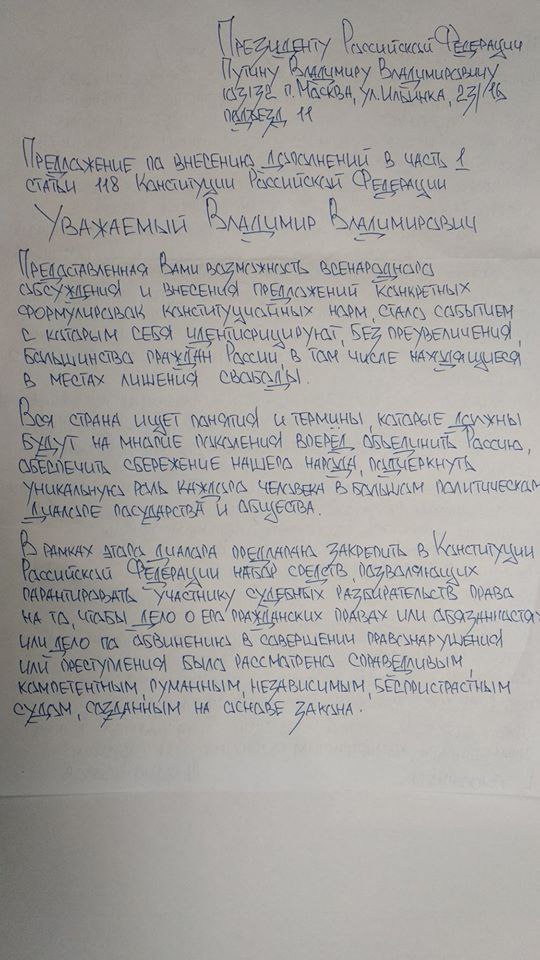 Президенту Российской Федерации
Путину Владимиру Владимировичу
103132 г. Москва, ул. Ильинка, 23/16
подъезд 11
Предложение по внесению дополнений в часть 1
статьи 118 Конституции Российской Федерации
Уважаемый Владимир Владимирович
Предоставленная Вами возможность всенародного
обсуждения и внесения предложений конкретных
формулировок конституционных норм, стало событием
с которым себя идентифицируют, без преувеличения,
большинство граждан России, в том числе находящиеся
в местах лишения свободы.
Вся страна ищет понятия и термины, которые должны
будут на многие поколения вперёд объединить Россию,
обеспечить сбережение нашего народа, подчеркнуть
уникальную роль каждого человека в большом политическом
диалоге государства и общества.
В рамках этого диалога предлагаю закрепить в Конституции
Российской Федерации набор средств, позволяющих
гарантировать участнику судебных разбирательств права
на то, чтобы дело о его гражданских правах или обязанностях
или дело по обвинению в совершении правонарушения
или преступления было рассмотрено справедливым,
компетентным, гуманным, независимым, беспристрастным
судом, созданным на основе закона.